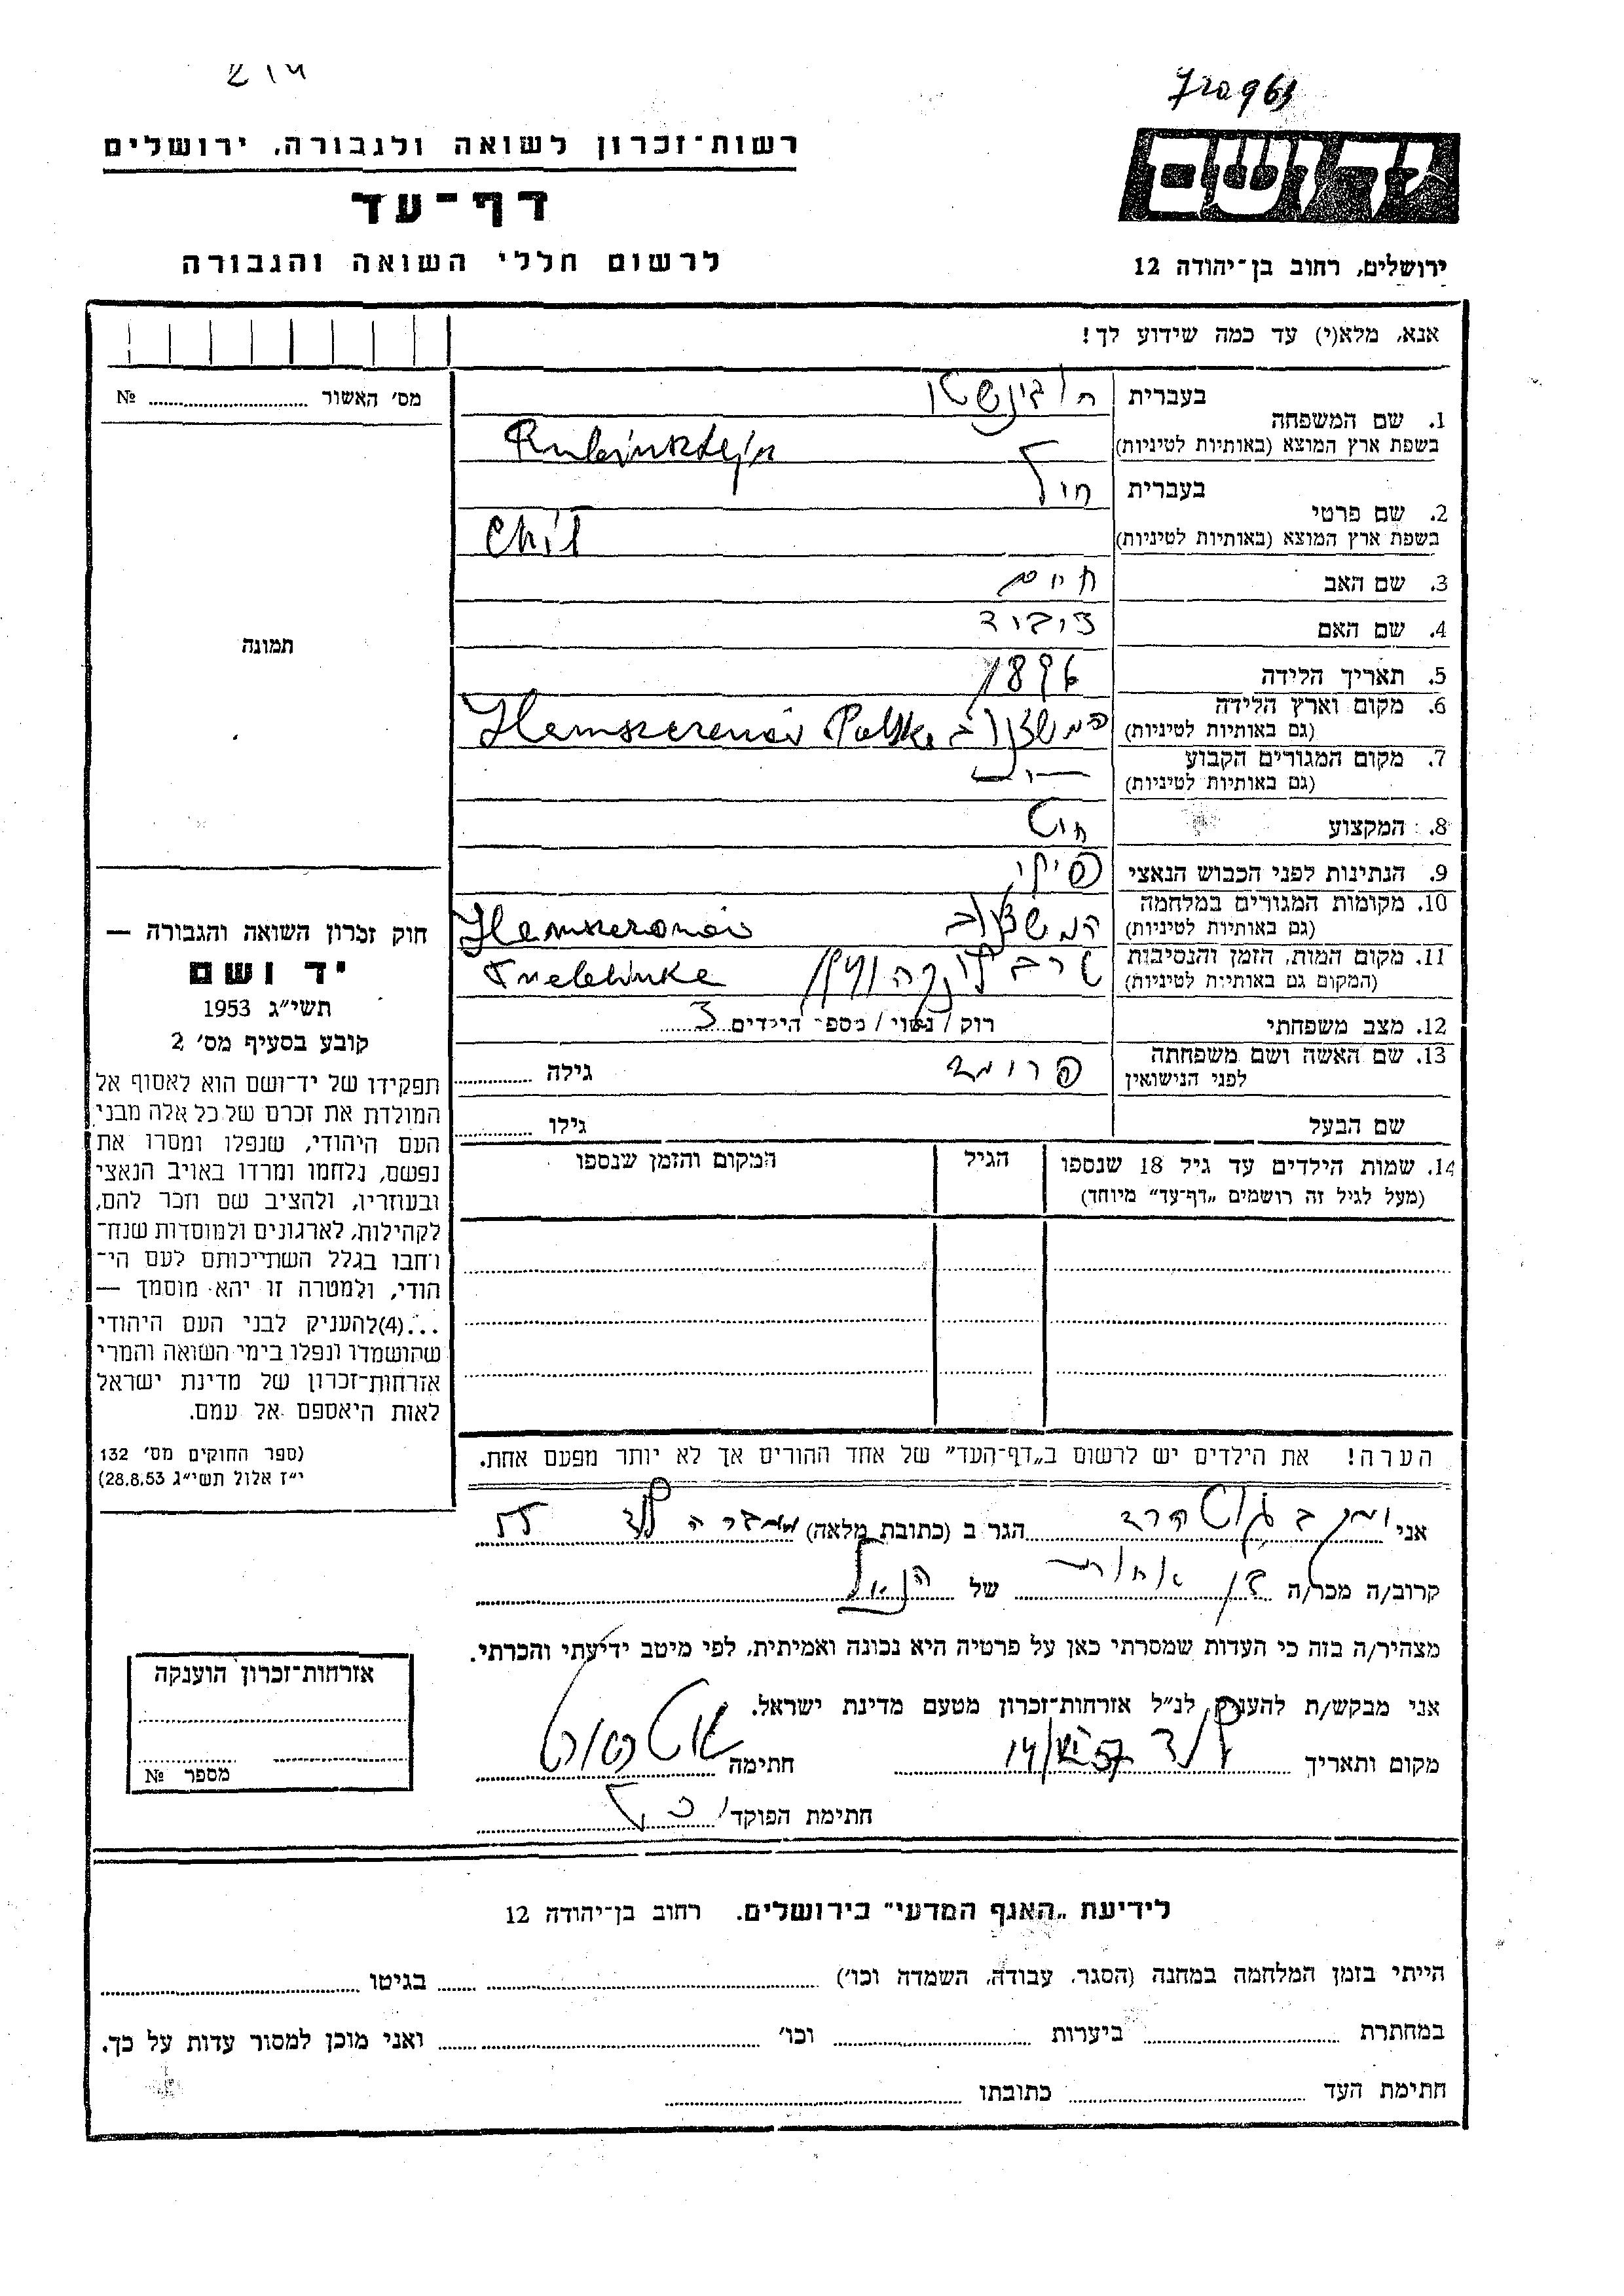 רשות־זכרון לשואה ולגבורה, ירושלים
דף־עד
לרשום חללי השואה והגבורה
ירושלים, רחוב בן־יהודה 12
אנא, מלא(י) עד כמה שידוע לך!
מס' האשור № 
תמונה
חוק זכרון השואה והגבורה —
יד ושם
תשי״ג 1953
קובע בסעיף מס' 2
תפקידו של יד־ושם הוא לאסוף אל
המולדת את זכרם של כל אלה מבני
העם היהודי, שנפלו ומסרו את
נפשם, נלחמו ומרדו באויב הנאצי
ובעוזריו, ולהציב שם וזכר להם,
לקהילות, לארגונים ולמוסדות שנח־
רחבו בגלל השתייכותם לעם הי־
הודי, ולמטרה זו יהא מוסמך —
...(4)להעניק לבני העם היהודי
שהושמדו ונפלו בימי השואה והמרי
אזרחות־זכרון של מדינת ישראל
לאות היאספם אל עמם.
(ספר החוקים מס' 132
י״ז אלול תשי״ג 28.8.53)
1. שם המשפחה בעברית רובינשטין
בשפת ארץ המוצא (באותיות לטיניות) Rubinsztejn
2. שם פרטי בעברית חיל
בשפת ארץ המוצא (באותיות לטיניות) Chil
3. שם האב חיים
4. שם האם
5. תאריך הלידה 1896
6. מקום וארץ הלידה
(גם באותיות לטיניות) Polska
7. מקום המגורים הקבוע
(גם באותיות לטיניות)
8. המקצוע
9. הנתינות לפני הכבוש הנאצי
10. מקומות המגורים במלחמה
(גם באותיות לטיניות)
11. מקום המות, הזמן והנסיבות
(המקום גם באותיות לטיניות) טרבלינקה
12. מצב משפחתי רוק / נשוי / מספר הילדים 3
13. שם האשה ושם משפחתה
לפני הנישואין גילה
שם הבעל גילו
14. שמות הילדים עד גיל 18 שנספו הגיל המקום והזמן שנספו
(מעל לגיל זה רושמים „דף־עד״ מיוחד)
הערה! את הילדים יש לרשום ב„דף־העד״ של אחד ההורים אך לא יותר מפעם אחת.
אני הגר ב (כתובת מלאה)
קרוב/ה מכר/ה בן אחות של הנ״ל
מצהיר/ה בזה כי העדות שמסרתי כאן על פרטיה היא נכונה ואמיתית, לפי מיטב ידיעתי והכרתי.
אני מבקש/ת להעניק לנ״ל אזרחות־זכרון מטעם מדינת ישראל.
מקום ותאריך חתימה
חתימת הפוקד
אזרחות־זכרון הוענקה
מספר №
לידיעת „האגף המדעי״ בירושלים. רחוב בן־יהודה 12
הייתי בזמן המלחמה במחנה (הסגר, עבודה, השמדה וכו') בגיטו
במחתרת ביערות וכו' ואני מוכן למסור עדות על כך.
חתימת העד כתובתו